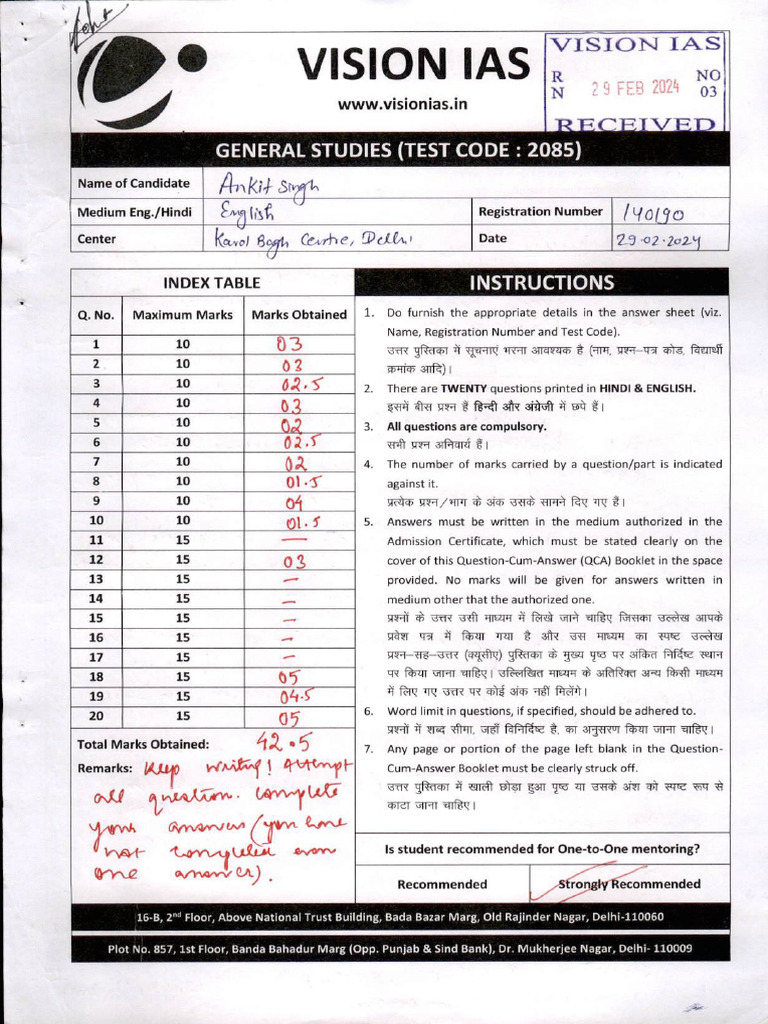 VISION IAS
www.visionias.in
VISION IAS
R NO
N 29 FEB 2024 03
RECEIVED
GENERAL STUDIES (TEST CODE : 2085)
Name of Candidate Ankit Singh
Medium Eng./Hindi English Registration Number 140190
Center Karol Bagh Centre, Delhi Date 29.02.2024
INDEX TABLE
Q. No. Maximum Marks Marks Obtained
1 10 03
2 10 03
3 10 02.5
4 10 03
5 10 02
6 10 02.5
7 10 02
8 10 01.5
9 10 04
10 10 01.5
11 15 —
12 15 03
13 15 –
14 15 –
15 15 –
16 15 –
17 15 –
18 15 05
19 15 04.5
20 15 05
Total Marks Obtained: 42.5
Remarks: Keep writing! Attempt
all question. Complete
your answers (you have
not completed even
one answer).
INSTRUCTIONS
1. Do furnish the appropriate details in the answer sheet (viz.
Name, Registration Number and Test Code).
उत्तर पुस्तिका में सूचनाएं भरना आवश्यक है (नाम, प्रश्न–पत्र कोड, विद्यार्थी
क्रमांक आदि)।
2. There are TWENTY questions printed in HINDI & ENGLISH.
इसमें बीस प्रश्न हैं हिन्दी और अंग्रेजी में छपे हैं।
3. All questions are compulsory.
सभी प्रश्न अनिवार्य हैं।
4. The number of marks carried by a question/part is indicated
against it.
प्रत्येक प्रश्न/भाग के अंक उसके सामने दिए गए हैं।
5. Answers must be written in the medium authorized in the
Admission Certificate, which must be stated clearly on the
cover of this Question-Cum-Answer (QCA) Booklet in the space
provided. No marks will be given for answers written in
medium other that the authorized one.
प्रश्नों के उत्तर उसी माध्यम में लिखे जाने चाहिए जिसका उल्लेख आपके
प्रवेश पत्र में किया गया है और उस माध्यम का स्पष्ट उल्लेख
प्रश्न–सह–उत्तर (क्यूसीए) पुस्तिका के मुख्य पृष्ठ पर अंकित निर्दिष्ट स्थान
पर किया जाना चाहिए। उल्लिखित माध्यम के अतिरिक्त अन्य किसी माध्यम
में लिए गए उत्तर पर कोई अंक नहीं मिलेंगे।
6. Word limit in questions, if specified, should be adhered to.
प्रश्नों में शब्द सीमा, जहाँ विनिर्दिष्ट है, का अनुसरण किया जाना चाहिए।
7. Any page or portion of the page left blank in the Question-
Cum-Answer Booklet must be clearly struck off.
उत्तर पुस्तिका में खाली छोड़ा हुआ पृष्ठ या उसके अंश को स्पष्ट रूप से
काटा जाना चाहिए।
Is student recommended for One-to-One mentoring?
Recommended Strongly Recommended
16-B, 2nd Floor, Above National Trust Building, Bada Bazar Marg, Old Rajinder Nagar, Delhi-110060
Plot No. 857, 1st Floor, Banda Bahadur Marg (Opp. Punjab & Sind Bank), Dr. Mukherjee Nagar, Delhi- 110009